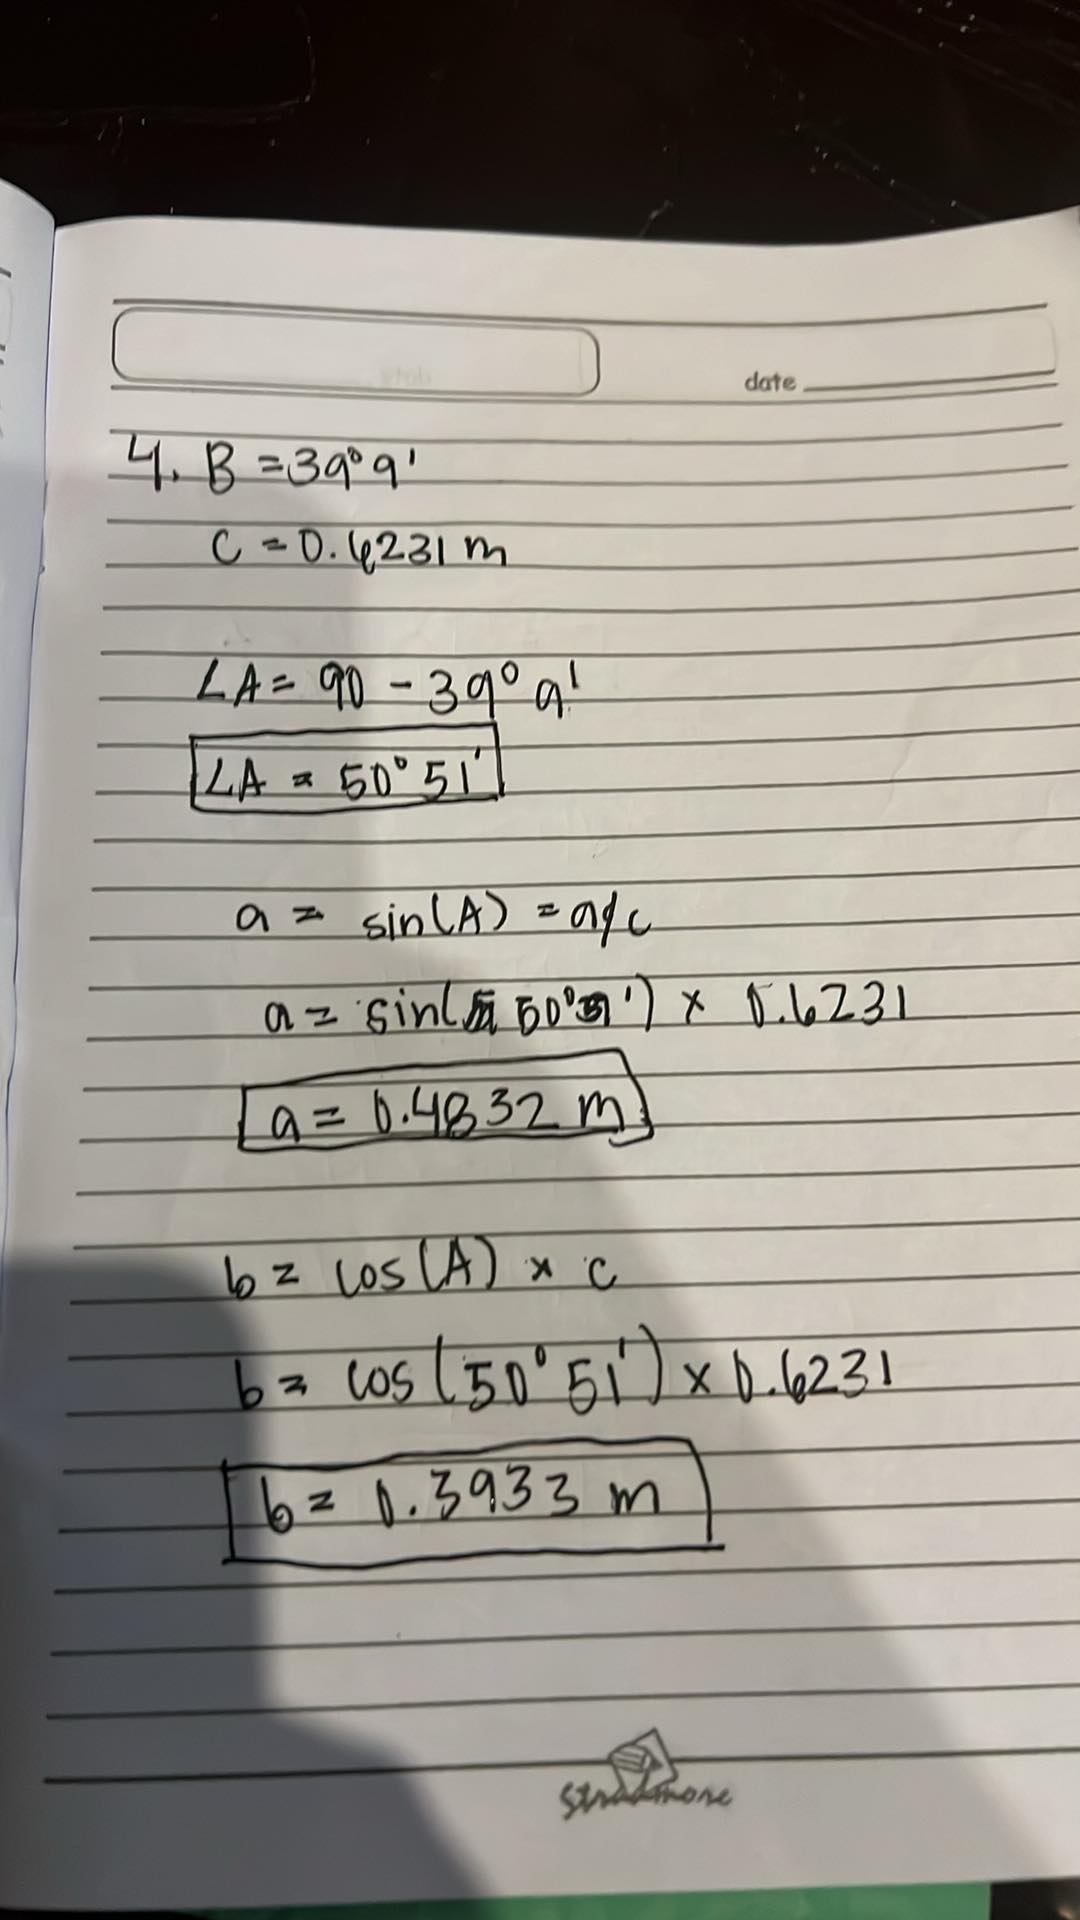 date
4. B = 39° 9'
C = 0.6231 m
∠A = 90 - 39° 9'
∠A = 50° 51'
a = sin(A) = a/c
a = sin( 50° 51') x 0.6231
a = 0.4832 m
b = cos(A) x c
b = cos(50° 51') x 0.6231
b = 0.3933 m
Stradmore